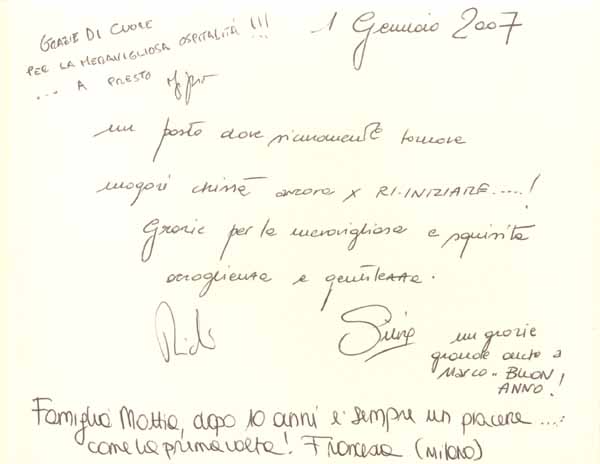 GRAZIE DI CUORE
PER LA MERAVIGLIOSA OSPITALITÀ !!!
... A PRESTO
1 Gennaio 2007
un posto dove sicuramente tornare
magari chissà ancora x RI-INIZIARE.....!
Grazie per la meravigliosa e squisita
accoglienza e gentilezza.
Silvia
un grazie
grande anche a
Marco.. BUON
ANNO!
Famiglia Mattia, dopo 10 anni è sempre un piacere ....
come la prima volta! Francesca (MILANO)